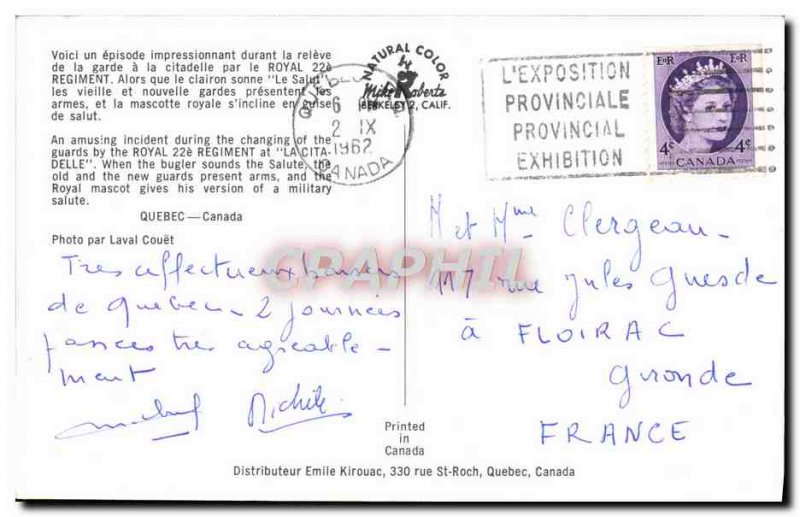 Voici un épisode impressionnant durant la relève
de la garde à la citadelle par le ROYAL 22è
REGIMENT. Alors que le clairon sonne "Le Salut",
les vieille et nouvelle gardes présentent les
armes, et la mascotte royale s'incline en guise
de salut.
An amusing incident during the changing of the
guards by the ROYAL 22è REGIMENT at "LA CITA-
DELLE". When the bugler sounds the Salute, the
old and the new guards present arms, and the
Royal mascot gives his version of a military
salute.
QUEBEC — Canada
Photo par Laval Couët
NATURAL COLOR
by
Mike Roberts
BERKELEY 2, CALIF.
6
2 IX
1962
CANADA
L'EXPOSITION
PROVINCIALE
PROVINCIAL
EXHIBITION
E II R E II R
4c CANADA 4c
Tres affectueux baisers
de Quebec - 2 journées
tres agreable -
ment
Michèle
M et Mme Clergeau -
117 rue Jules Guesde
à FLOIRAC
Gironde
FRANCE
CPAPHIL
Printed
in
Canada
Distributeur Emile Kirouac, 330 rue St-Roch, Quebec, Canada